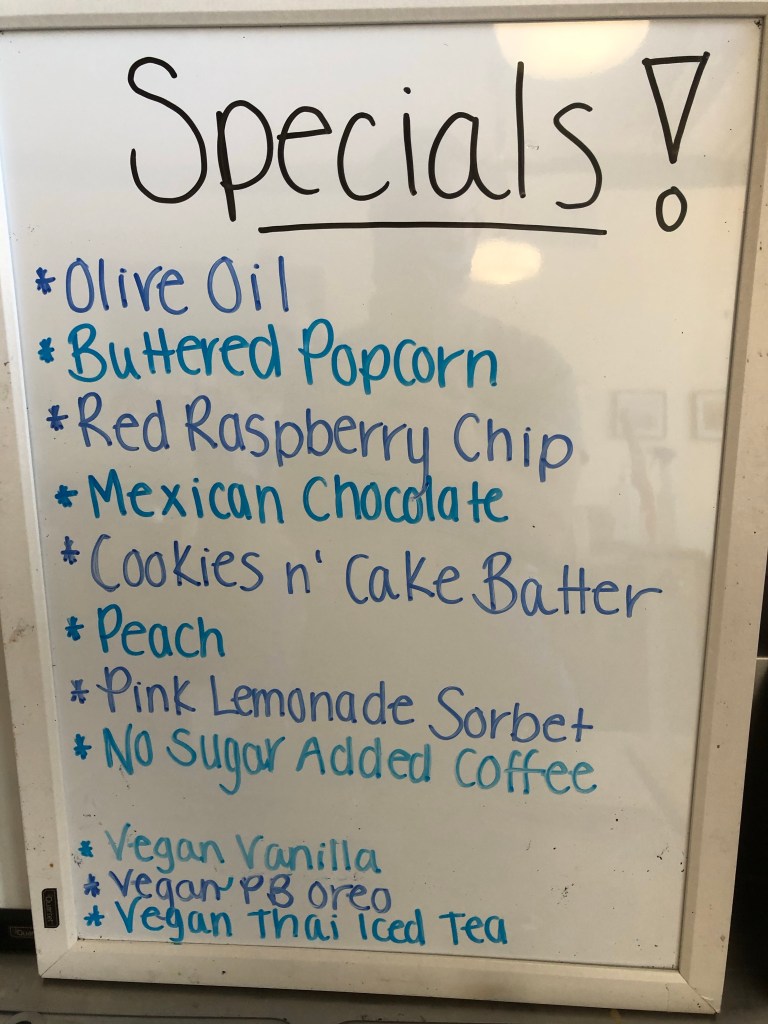 Specials!
* Olive Oil
* Buttered Popcorn
* Red Raspberry Chip
* Mexican Chocolate
* Cookies n' Cake Batter
* Peach
* Pink Lemonade Sorbet
* No Sugar Added Coffee
* Vegan Vanilla
* Vegan PB Oreo
* Vegan Thai Iced Tea
Quartet